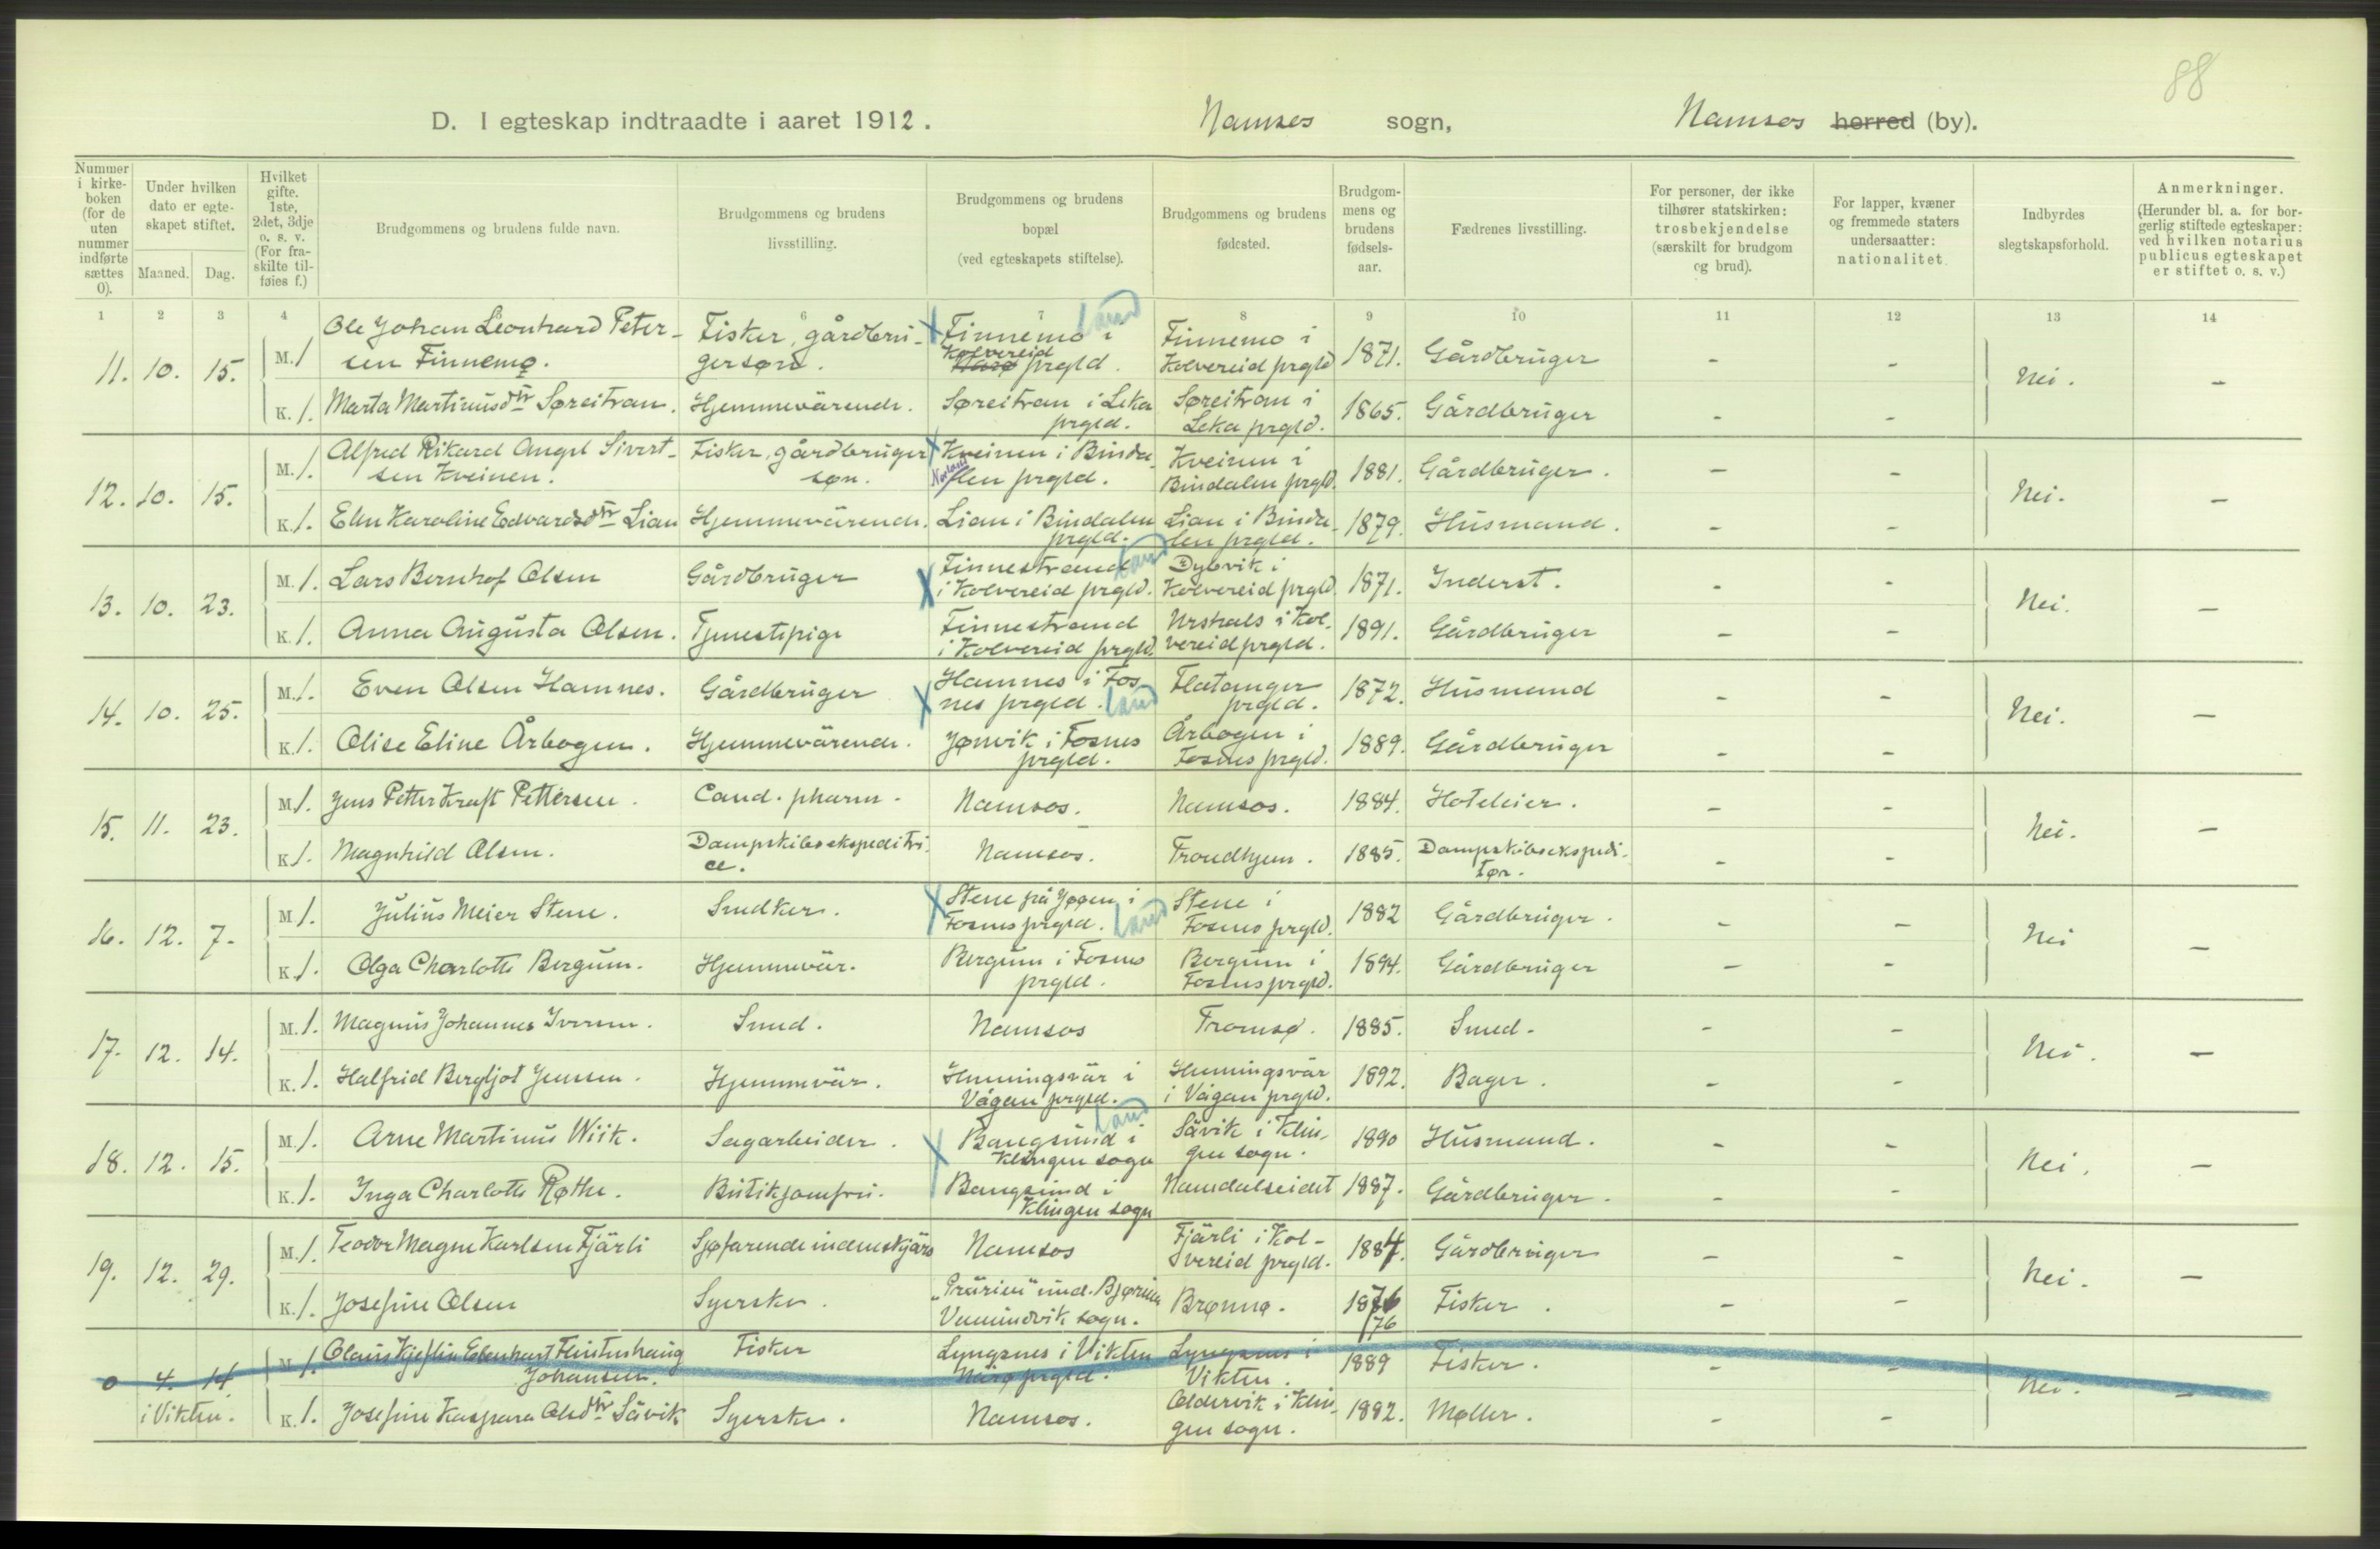 88
D. I egteskap indtraadte i aaret 1912. Namsos sogn, Namsos herred (by).
Nummer i kirke-boken (for de uten nummer indførte sættes 0).
Under hvilken dato er egte-skapet stiftet.
Maaned. Dag.
Hvilket gifte. 1ste, 2det, 3dje o. s. v. (For fra-skilte til-føies f.)
Brudgommens og brudens fulde navn.
Brudgommens og brudens livsstilling.
Brudgommens og brudens bopæl (ved egteskapets stiftelse).
Brudgommens og brudens fødested.
Brudgom-mens og brudens fødsels-aar.
Fædrenes livsstilling.
For personer, der ikke tilhører statskirken: trosbekjendelse (særskilt for brudgom og brud).
For lapper, kvæner og fremmede staters undersaatter: nationalitet.
Indbyrdes slegtskapsforhold.
Anmerkninger. (Herunder bl. a. for bor-gerlig stiftede egteskaper: ved hvilken notarius publicus egteskapet er stiftet o. s. v.)
1 2 3 4 6 7 8 9 10 11 12 13 14
11. 10. 15. M. 1 Ole Johan Leonhard Peter-sen Finnemo. Fisker, gårdbru-gersøn. Finnemo i Kolvereid Nærø prgld. Land Finnemo i Kolvereid prgld 1871. Gårdbruger - - Nei. -
K. 1. Marta Martinusdtr Søreitran. Hjemmeværende. Søreitran i Leka prgld. Søreitran i Leka prgld. 1865. Gårdbruger - -
12. 10. 15. M. 1. Alfred Rikard Angel Sivert-sen Kveinen. Fisker, gårdbruger søn. Kveinen i Binda-len prgld. Norland Kveinen i Bindalen prgld. 1881. Gårdbruger. - - Nei. -
K. 1. Elen Karoline Edvardsdtr Lian Hjemmeværende. Lian i Bindalen prgld. Lian i Binda-len prgld. 1879. Husmand. - -
13. 10. 23. M. 1. Lars Bernhof Olsen Gårdbruger Finnestrand i Kolvereid prgld. Land Dybvik i Kolvereid prgld. 1871. Inderst. - - Nei. -
K. 1. Anna Augusta Olsen. Tjenestepige Finnestrand i Kolvereid prgld. Urstals i Kol-vereid prgld. 1891. Gårdbruger - -
14. 10. 25. M. 1. Even Olsen Hamnes. Gårdbruger Hamnes i Fos-nes prgld. Land Flatanger prgld. 1872. Husmand - - Nei. -
K. 1. Olise Eline Årbogen. Hjemmeværende. Jønvik i Fosnes prgld. Årbogen i Fosnes prgld. 1889. Gårdbruger - -
15. 11. 23. M. 1. Jens Petter Kraft Pettersen. Cand. pharm. Namsos. Namsos. 1884. Hoteleier. - - Nei. -
K. 1. Magnhild Olsen. Dampskibsekspeditri-ce. Namsos. Trondhjem. 1885. Dampskibsekspedi-tør. - -
16. 12. 7. M. 1. Julius Meier Stene. Snedker. Stene på Jøøen i Fosnes prgld. Land Stene i Fosnes prgld. 1882 Gårdbruger. - - Nei -
K. 1. Olga Charlotte Bergum. Hjemmevær. Bergum i Fosnes prgld. Bergum i Fosnes prgld. 1894. Gårdbruger - -
17. 12. 14. M. 1. Magnus Johannes Iversen. Smed. Namsos Tromsø. 1885. Smed. - - Nei. -
K. 1. Halfrid Bergljot Jenssen. Hjemmevær. Henningsvær i Vågan prgld. Henningsvær i Vågan prgld. 1892. Bager. - -
18. 12. 15. M. 1. Arne Martinus Wiik. Sagarbeider. Bangsund i Klingen sogn Land Sævik i Klin-gen sogn. 1890 Husmand. - - Nei. -
K. 1. Inga Charlotte Røthe. Butikjomfru. Bangsund i Klingen sogn Namdalseidet 1887. Gårdbruger. - -
19. 12. 29. M. 1. Teodor Magne Karlsen Fjærli Sjøfarende indenskjærs Namsos Fjærli i Kol-vereid prgld. 1884. Gårdbruger - - Nei. -
K. 1. Josefine Olsen Syerske. "Prærien" und. Bjørum Vemundvik sogn. Brønnø. 1876 /76 Fisker. - -
0 4. 14. i Vikten. M. 1. Olaus Kjeflin Edenhart Flintushaug Johansen. Fisker Lyngsnes i Vikten Nærø prgld. Lyngsnes i Vikten. 1889 Fisker. - - Nei. -
K. 1. Josefine Kaspara Olsdtr Sævik Syerske. Namsos. Aldervik i Klin-gen sogn. 1882. Møller. - -